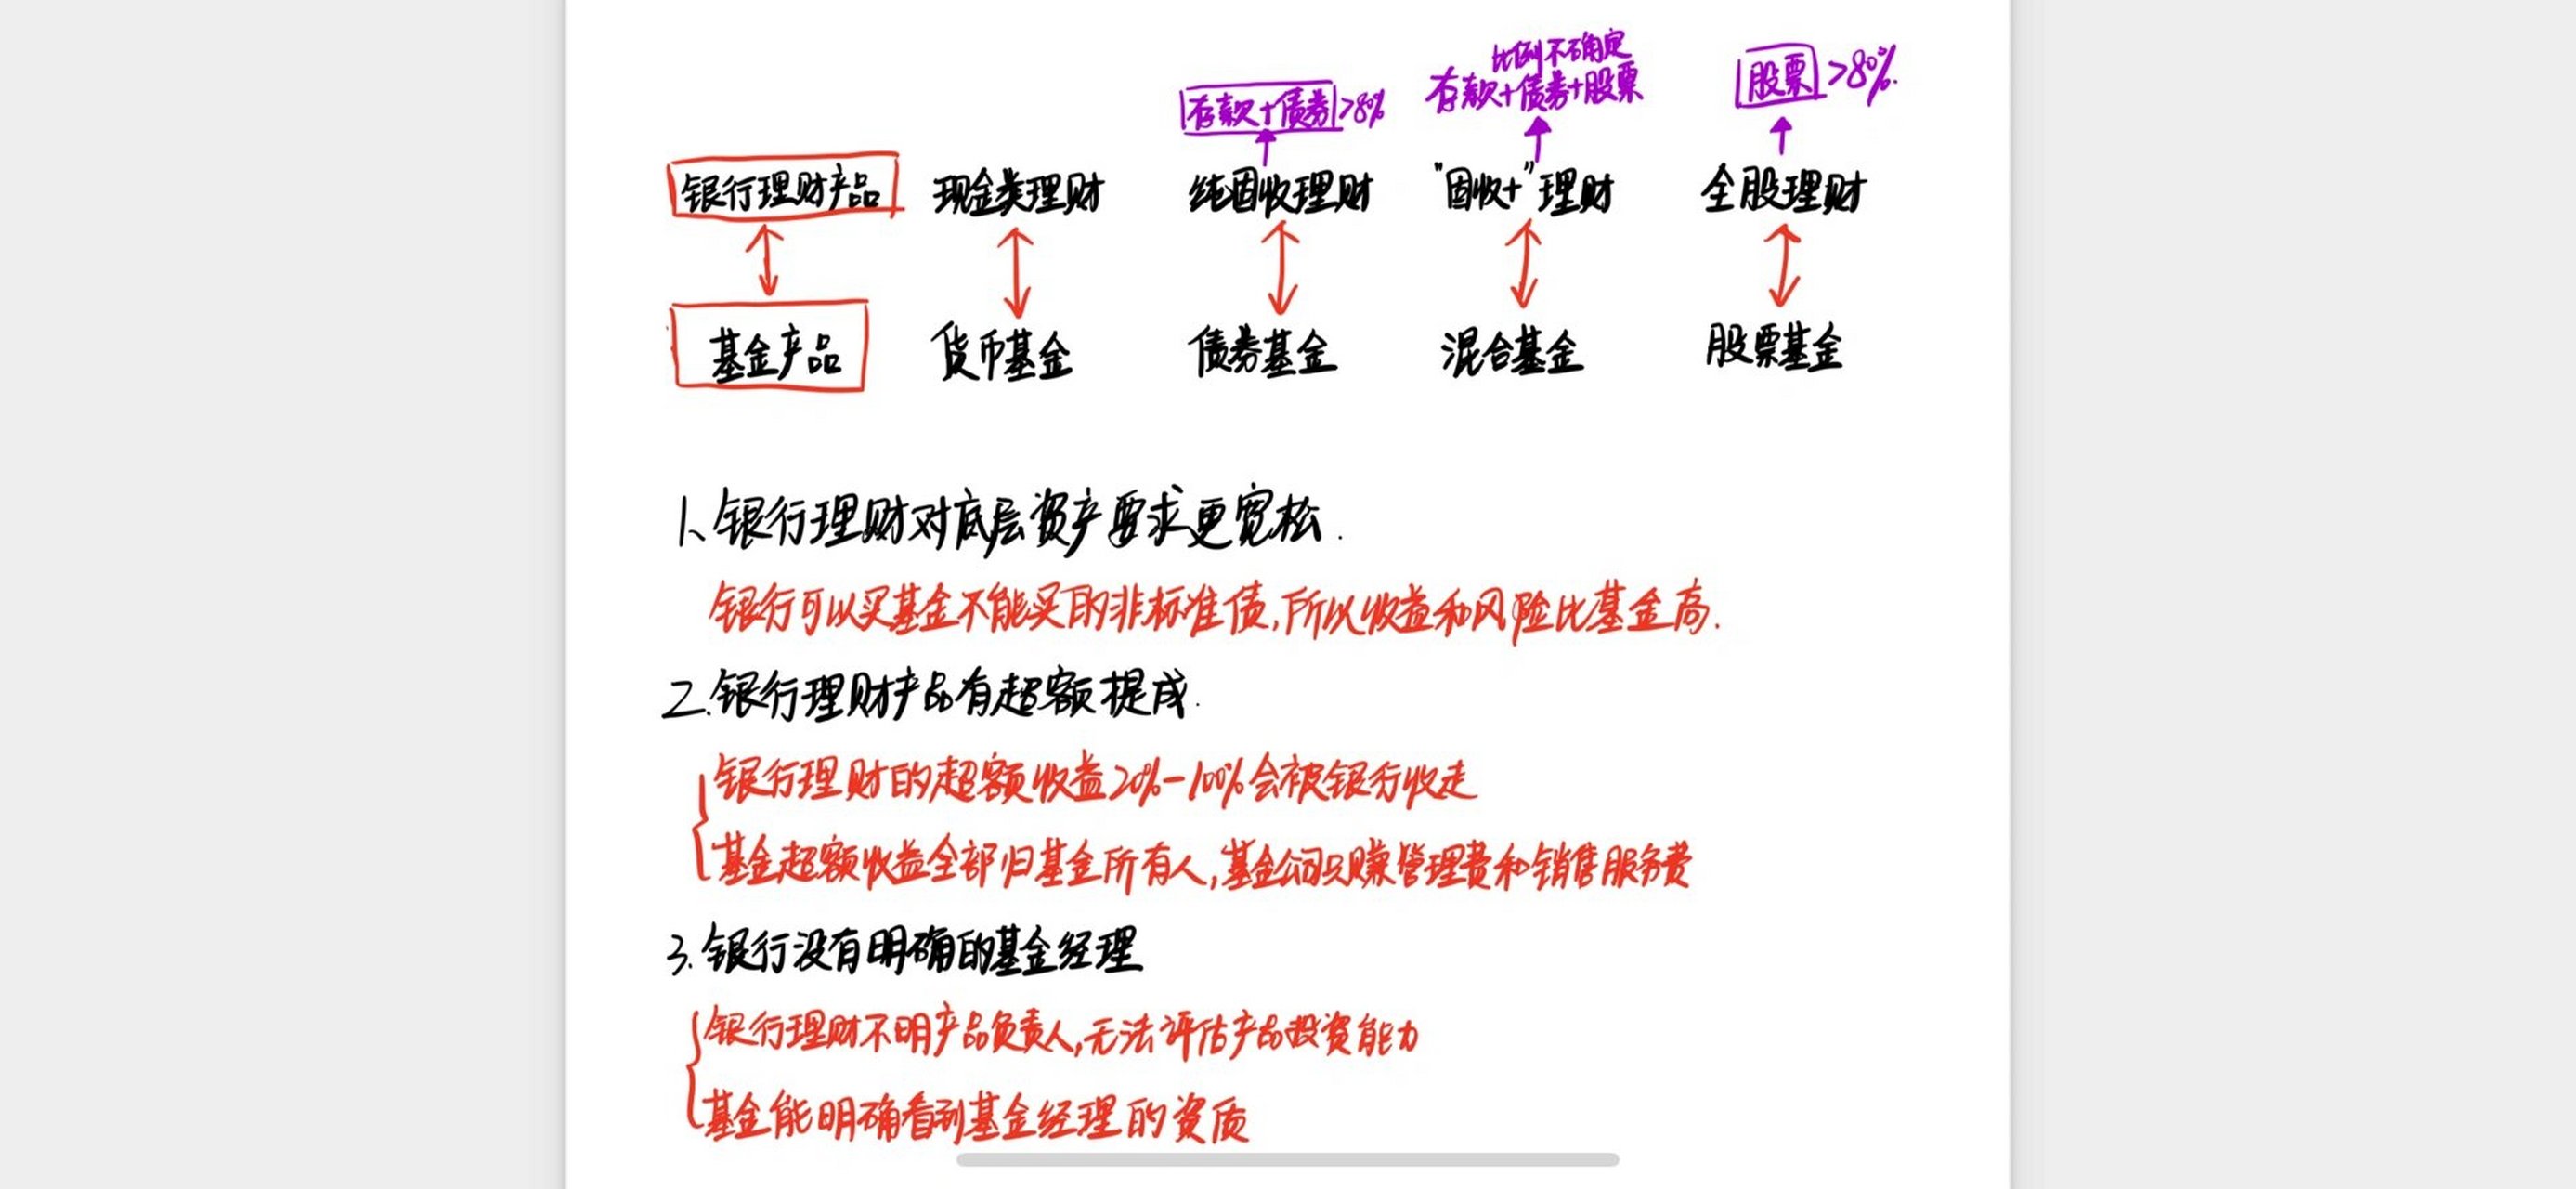 比例不确定
存款+债券>80% 存款+债券+股票 股票>80%.
银行理财产品 现金类理财 纯固收理财 "固收+"理财 全股理财
基金产品 货币基金 债券基金 混合基金 股票基金
1、银行理财对底层资产要求更宽松.
银行可以买基金不能买的非标准债,所以收益和风险比基金高.
2.银行理财产品有超额提成.
银行理财的超额收益20%-100%会被银行收走
基金超额收益全部归基金所有人,基金公司只赚管理费和销售服务费
3.银行没有明确的基金经理
银行理财不明产品负责人,无法评估产品投资能力
基金能明确看到基金经理的资质